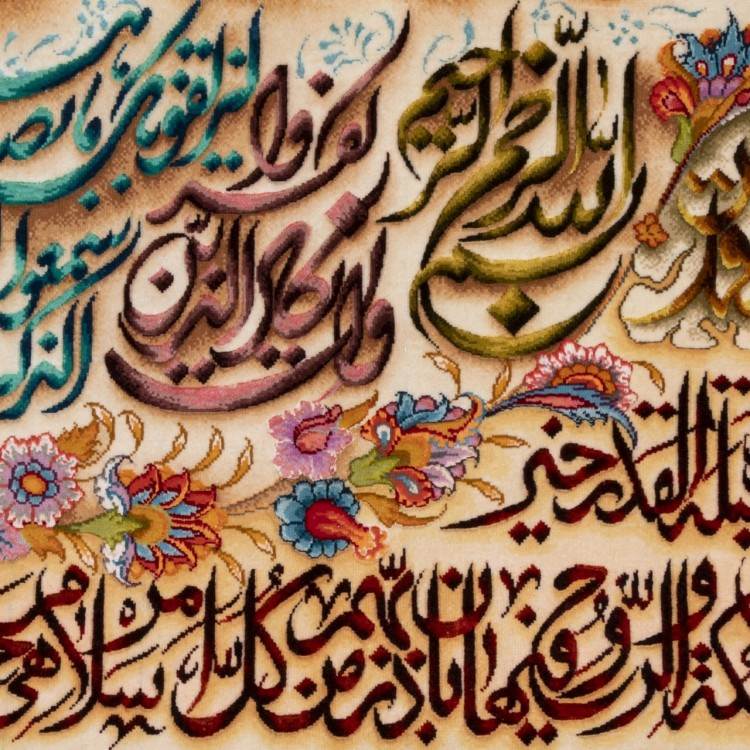 بسم الله الرحمن الرحيم
وان يكاد الذين كفروا
ليزلقونك بابصارهم
سمعوا الذكر
ليلة القدر خير
والروح فيها باذن ربهم من كل امر سلام هي